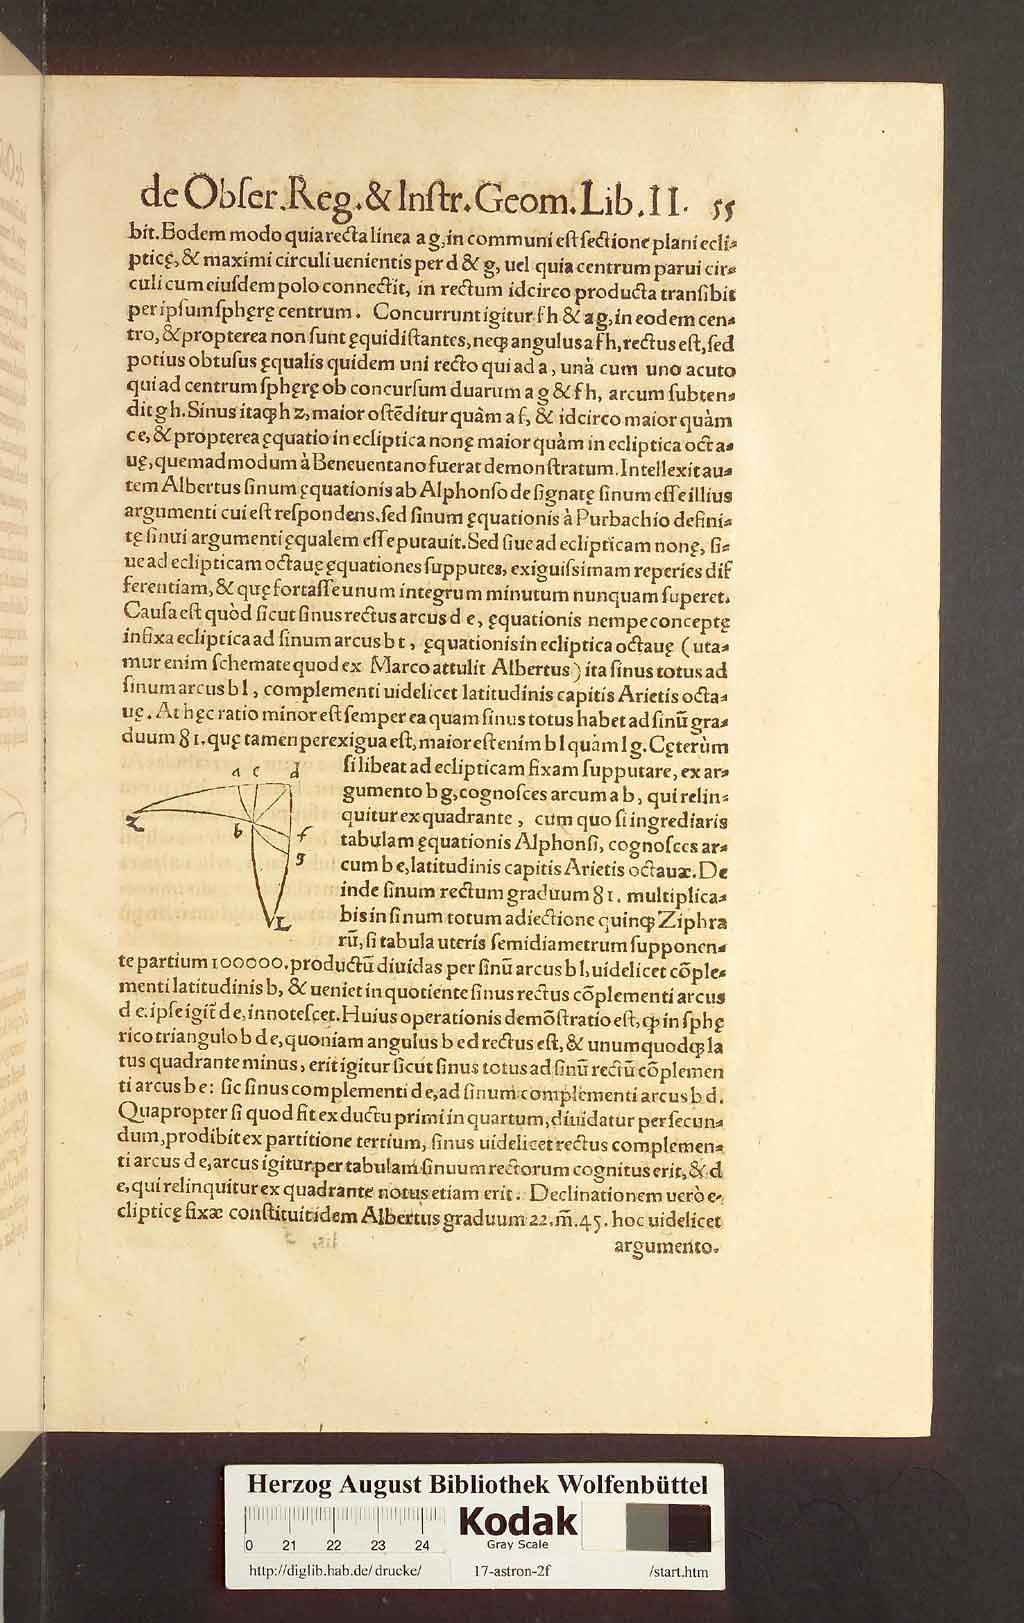 de Obſer.Reg.& Inſtr.Geom.Lib.II. 55
bit.Eodem modo quia recta linea a g, in communi eſt ſectione plani ecli⸗
pticę, & maximi circuli uenientis per d & g, uel quia centrum parui cir⸗
culi cum eiuſdem polo connectit, in rectum idcirco producta tranſibit
per ipſum ſphęrę centrum. Concurrunt igitur f h & a g, in eodem cen⸗
tro, & propterea non ſunt ęquidiſtantes, neqꝫ angulus a f h, rectus eſt, ſed
potius obtuſus ęqualis quidem uni recto qui ad a, unà cum uno acuto
qui ad centrum ſphęrę ob concurſum duarum a g & f h, arcum ſubten⸗
dit g h. Sinus itaqꝫ h z, maior oſtẽditur quàm a f, & idcirco maior quàm
c e, & propterea ęquatio in ecliptica nonę maior quàm in ecliptica octa⸗
uę, quemadmodum à Beneuentano fuerat demonſtratum. Intellexit au⸗
tem Albertus ſinum ęquationis ab Alphonſo deſignatę ſinum eſſe illius
argumenti cui eſt reſpondens, ſed ſinum ęquationis à Purbachio defini⸗
tę ſinui argumenti ęqualem eſſe putauit. Sed ſiue ad eclipticam nonę, ſi⸗
ue ad eclipticam octauę ęquationes ſupputes, exiguiſsimam reperies dif
ferentiam, & quę fortaſſe unum integrum minutum nunquam ſuperet.
Cauſa eſt quòd ſicut ſinus rectus arcus d e, ęquationis nempe conceptę
in fixa ecliptica ad ſinum arcus b t, ęquationis in ecliptica octauę (uta⸗
mur enim ſchemate quod ex Marco attulit Albertus) ita ſinus totus ad
ſinum arcus b l, complementi uidelicet latitudinis capitis Arietis octa⸗
uę. At hęc ratio minor eſt ſemper ea quam ſinus totus habet ad ſinũ gra⸗
duum 81. quę tamen perexigua eſt, maior eſt enim b l quàm l g. Cęterùm
ſi libeat ad eclipticam fixam ſupputare, ex ar⸗
gumento b g, cognoſces arcum a b, qui relin⸗
quitur ex quadrante, cum quo ſi ingrediaris
tabulam ęquationis Alphonſi, cognoſces ar⸗
cum b e, latitudinis capitis Arietis octauæ. De
inde ſinum rectum graduum 81. multiplica⸗
bis in ſinum totum adiectione quinqꝫ Ziphra
rũ, ſi tabula uteris ſemidiametrum ſupponen⸗
a c d
z b f
g
L
te partium 100000. productũ diuidas per ſinũ arcus b l, uidelicet cõple⸗
menti latitudinis b, & ueniet in quotiente ſinus rectus cõplementi arcus
d e: ipſe igit̃ d e, innoteſcet. Huius operationis demõſtratio eſt, ꝙ in ſphę
rico triangulo b d e, quoniam angulus b e d rectus eſt, & unumquodqꝫ la
tus quadrante minus, erit igitur ſicut ſinus totus ad ſinũ rectũ cõplemen
ti arcus b e: ſic ſinus complementi d e, ad ſinum complementi arcus b d.
Quapropter ſi quod fit ex ductu primi in quartum, diuidatur per ſecun⸗
dum, prodibit ex partitione tertium, ſinus uidelicet rectus complemen⸗
ti arcus d e, arcus igitur per tabulam ſinuum rectorum cognitus erit, & d
e, qui relinquitur ex quadrante notus etiam erit. Declinationem uerò e⸗
clipticę fixæ conſtituit idem Albertus graduum 22. m̃. 45. hoc uidelicet
argumento.
Herzog August Bibliothek Wolfenbüttel
0 21 22 23 24
Kodak
Gray Scale
http://diglib.hab.de/drucke/ 17-astron-2f /start.htm